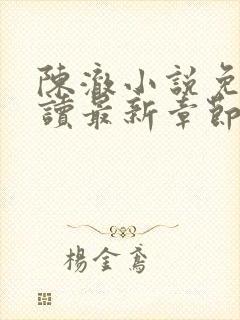 陳澈小說免
讀最新章節
楊金鳶